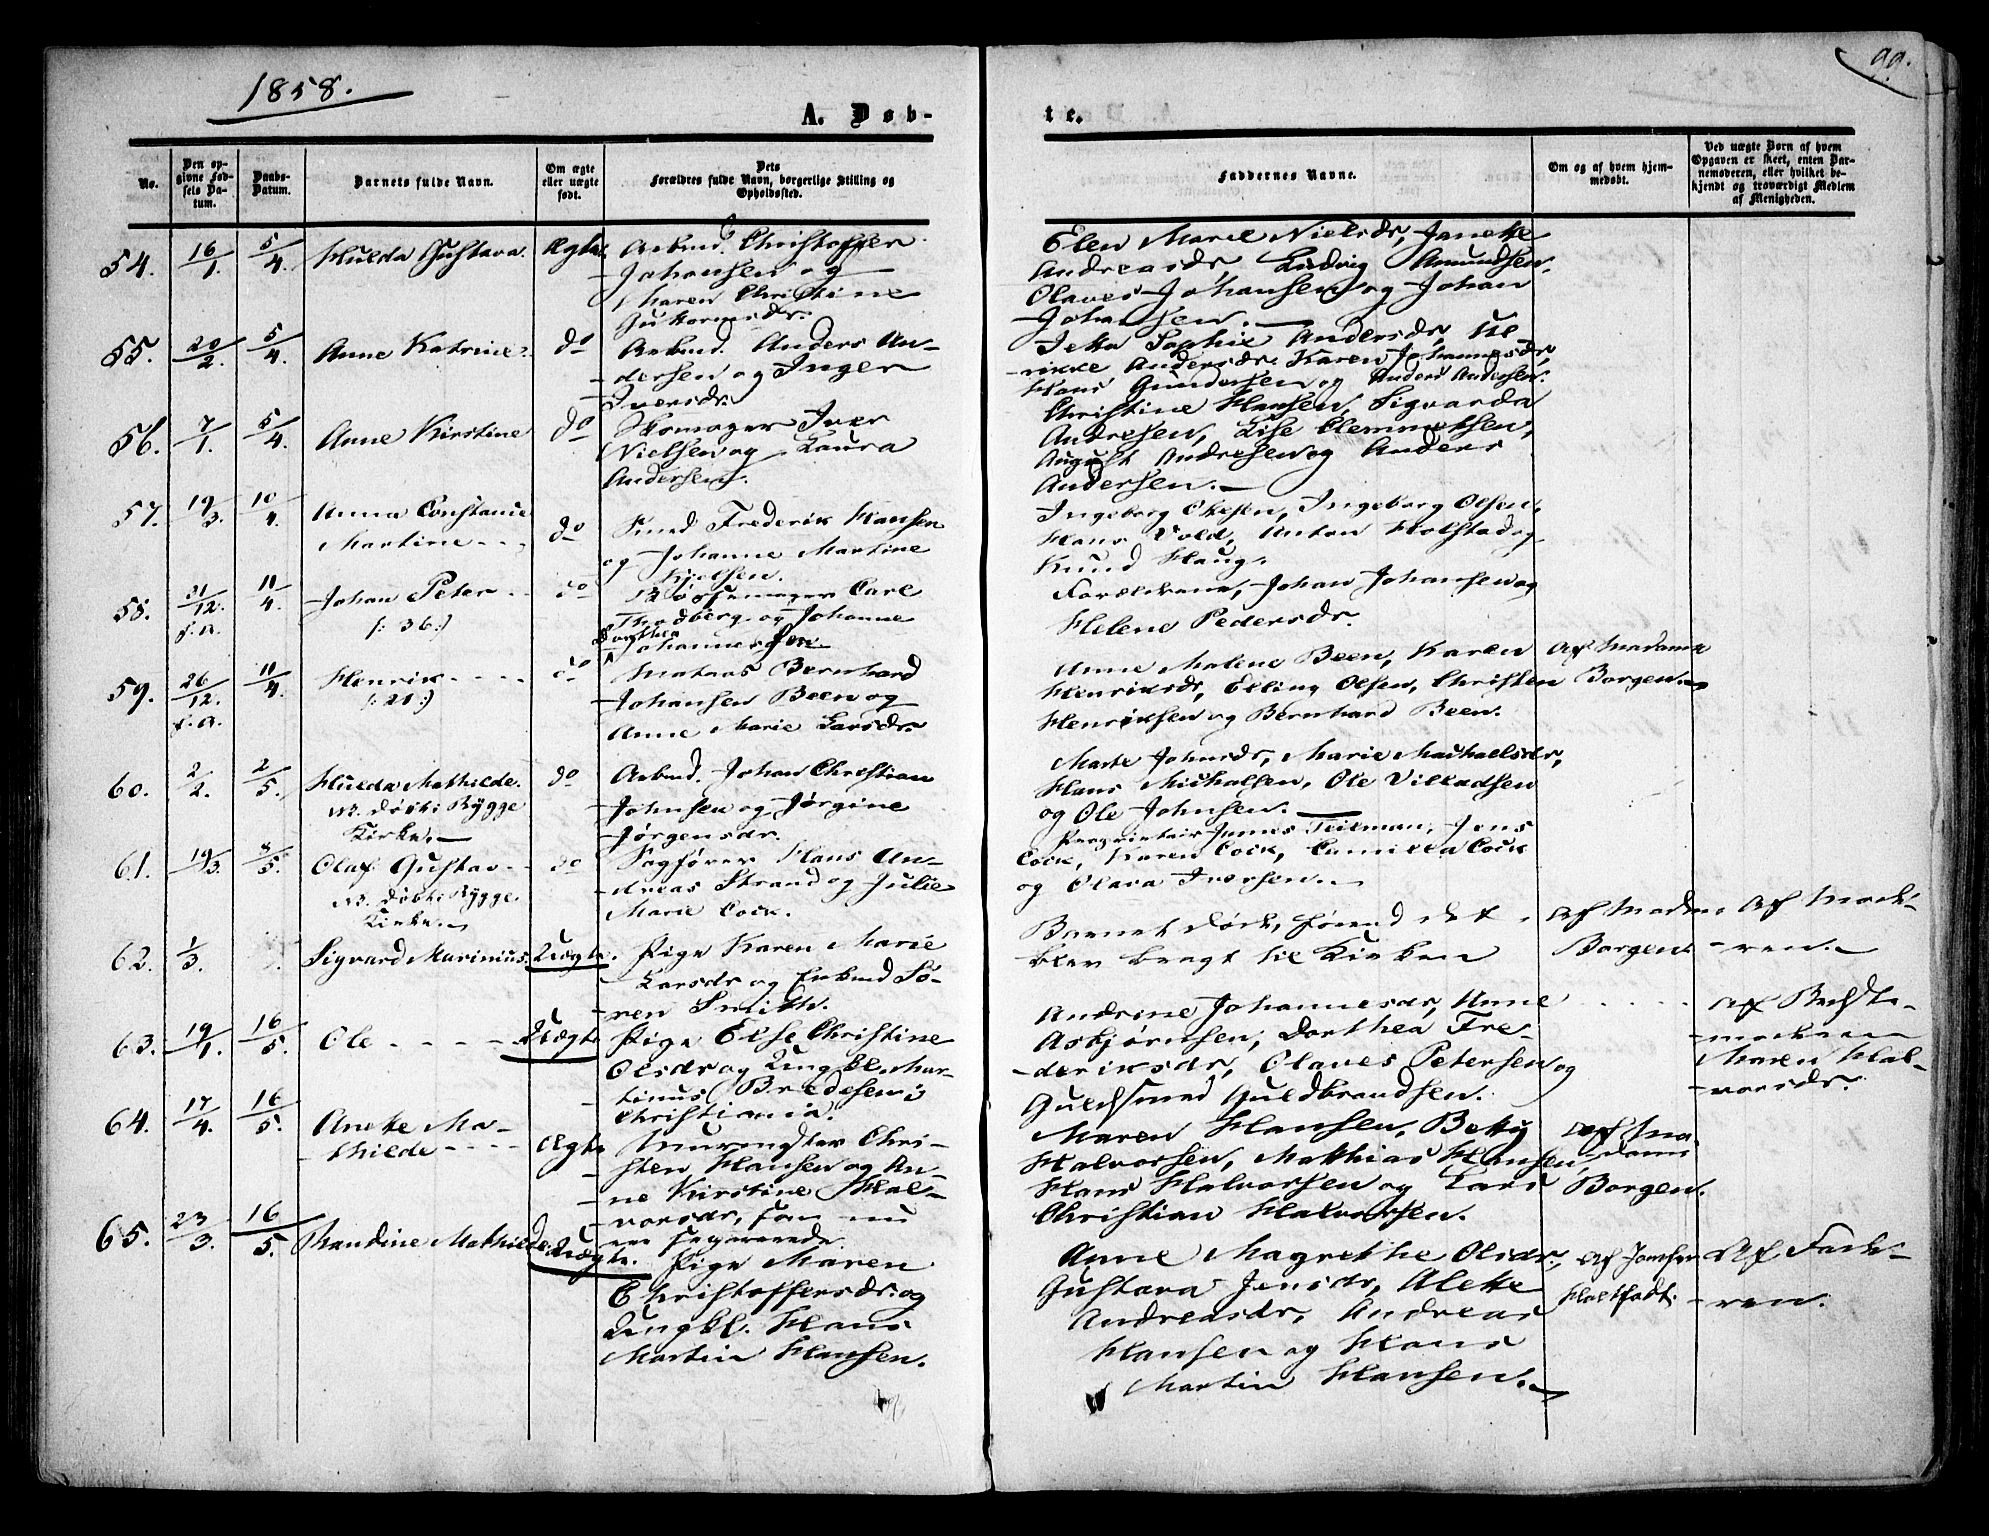 1858.
99.
A. Døb-
te.
No.
Den op-
givne Fød-
sels Da-
tum.
Daabs-
Datum.
Barnets fulde Navn.
Om ægte
eller uægte
født.
Dets
Forældres fulde Navn, borgerlige Stilling og
Opholdssted.
Faddernes Navne.
Om og af hvem hjem-
medøbt.
Ved uægte Børn af hvem
Opgaven er skeet, enten Bar-
nemoderen, eller hvilket be-
kjendt og troværdigt Medlem
af Menigheden.
54. 16/1. 5/4. Hulda Gustava. Ægte. Arbmd. Christoffer
Johansen og
Maren Christine
Guttormsdr.
Elen Marie Nielsdr, Janette
Andreasdr, Ludvig Amundsen,
Olaves Johansen og Johan
Johansen.
55. 20/2. 5/4. Anne Katrine. do Arbmd. Anders An-
dersen og Inger
Iversdr.
Jetta Sophie Andersdr,
rikke Andersdr. Karen Johannesdr,
Hans Gundersen og Anders Andersen.
56. 7/1. 5/4. Anne Kirstine do Skomager Iver
Nielsen og Laura
Andersen.
Christine Hansen, Sigvarda
Andresen, Lise Clemmetsen,
August Andresen og Anders
Andersen.
57. 19/3. 10/4. Anna Constance
Martine do Smed Frederik Hansen
og Johanne Martine
Kjølsen.
Ingeborg Olsen, Ingeborg Olsen,
Hans Vold, Anton Holstad og
Knud Haug.
58. 21/12. f. A. 11/4. Johan Peter
/: 36:/ do Bøssemager Carl
Thodberg og Johanne
Dorthea
Johannessen
Forældrene, Johan Johansen og
Helene Pedersdr.
59. 26/12. f. A. 11/4. Henrik
/: 21:/ do Matros Bernhard
Johansen Been og
Anne Marie Larsdr.
Anne Malene Been, Karen
Henriksdr, Elling Olsen, Christen
Henriksen og Bernhard Been.
Af Madame
Borgen.
60. 2/2. 2/5. Hulda Mathilde.
NB. døbt i Rygge
Kirke. do Arbmd. Johan Christian
Johnsen og Jørgine
Jørgensdr.
Marte Johnsdr, Marie Machaelsdr,
Hans Michalsen, Ole Villadsen
og Ole Johnsen.
61. 19/3. 8/5. Olaf Gustav
NB. døbt i Rygge
Kirke. do Sagfører Hans An-
dreas Strand og Julie
Marie Cock.
Proprietair James Teilman, Jens
Cock, Karen Cock, Camilla Cock
og Clara Iversen.
62. 1/3. Sigvard Marinius. Uægte. Pige Karen Marie
Larsdr og Enkmd Sø-
ren Smith.
Barnet døde, førend det
blev bragt til Kirken
Af Madm.
Borgen
Af Mod-
ren.
63. 19/1. 16/5. Ole Uægte Pige Else Christine
Olsdr og Ungkl. Mar-
tinus Bredesen i
Christiania.
Andrine Johannesdr, Anne
Asbjørnsen, Dorthea Fre-
deriksdr, Olaves Petersen og
Guldsmed Guldbrandsen.
Af Bedste-
moderen
Maren Hal-
vorsdr.
64. 17/4. 16/5. Anette Ma-
thilde Ægte Murmester Chri-
sten Hansen og An-
ne Kirstine Hal-
vorsdr, som nu
ere separerede
Maren Hansen, Betty
Halvorsen, Mathias Hansen,
Hans Halvorsen og Lars
Christian Halvorsen.
Af Ma-
dame
Borgen.
65. 23/3. 16/5. Randine Mathilde Uægte. Pige Maren
Christoffersdr. og
Ungkl. Hans
Martin Hansen.
Anne Magrethe Olsdr.,
Gustava Jensdr, Alette
Andreasdr, Andreas
Hansen og Hans
Martin Hansen.
Af Jomfru
Af Fade-
ren.